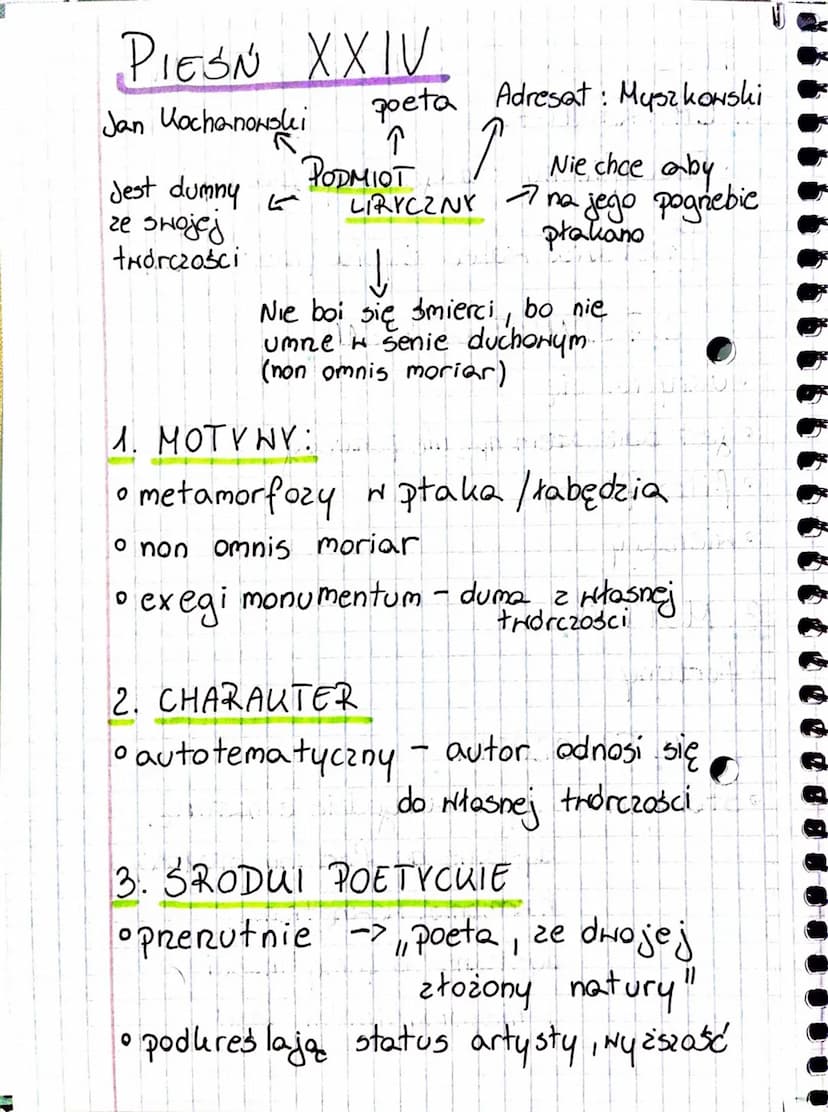 PIEŚŃ XXIV
Jan Kochanowski
poeta
Adresat : Myszkowski
PODMIOT
LIRYCZNY
Jest dumny
ze swojej
twórczości
Nie chce aby
na jego pogrzebie
płakano
Nie boi się śmierci, bo nie
umrze w senie duchowym
(non omnis moriar)
1. MOTYWY:
o metamorfozy w ptaka /łabędzia
o non omnis moriar
o exegi monumentum - duma z własnej
twórczości
2. CHARAKTER
o autotematyczny - autor odnosi się
do własnej twórczości
3. ŚRODKI POETYCKIE
o przerutnie -> „poeta, ze dwojej
złożony natury"
• podkreślają status artysty, wyższość